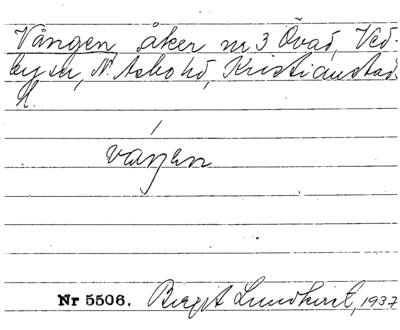 Vången, åker nr 3 Övad, Ved-
by sn, N. Åsbo hd, Kristianstads
l.
váŋen
Nr 5506. Birgit Lundkvist, 1937